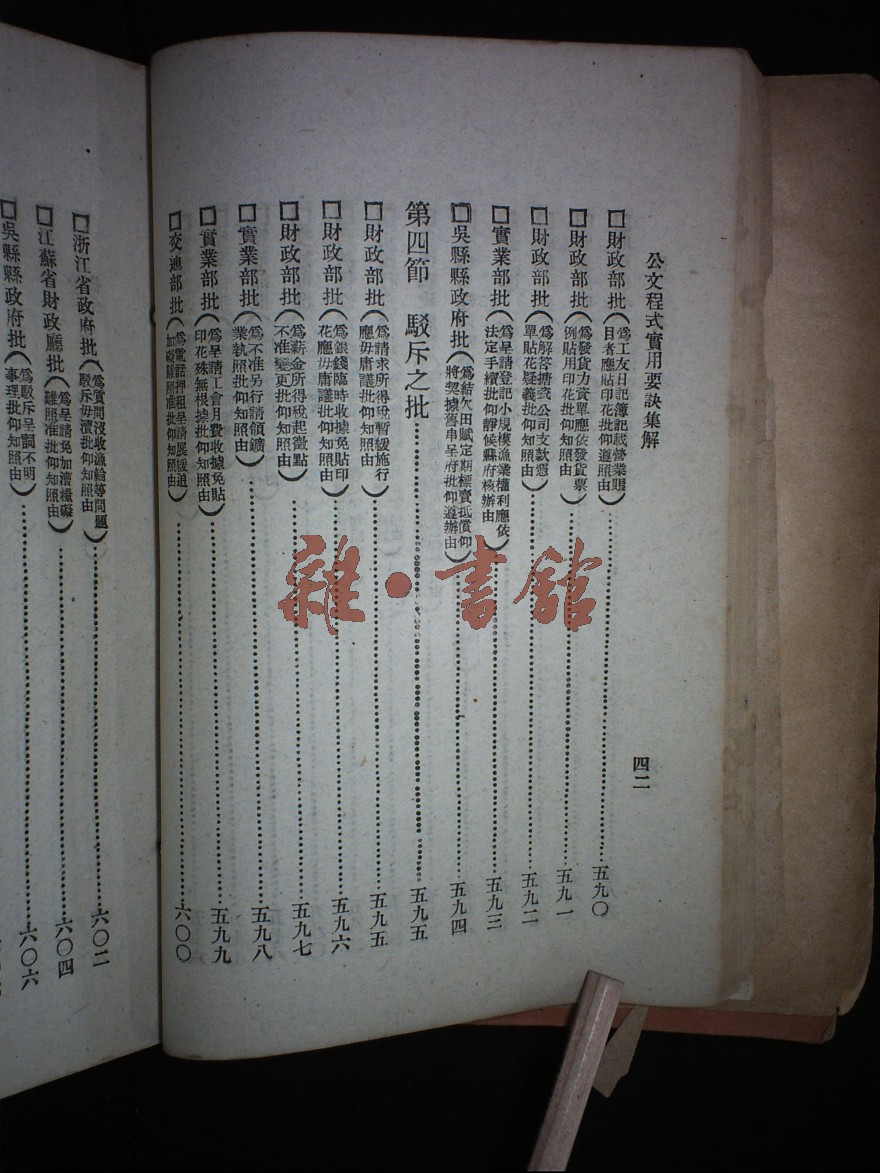 公文程式實用要訣集解
四二
□財政部批(爲工友日記簿記載營業賬目者應貼印花批仰遵照由)……五九〇
□財政部批(爲發貨力資單應依發貨票例貼用印花批仰知照由)……五九一
□財政部批(爲解答搪瓷公司支款憑單貼花疑義批仰知照由)……五九二
□實業部批(爲呈請登記小規模漁業權利應依法定手續批仰靜候縣府核辦由)……五九三
□吳縣縣政府批(爲結欠田賦定期標賣抵償仰將契據舊串呈府批仰遵辦由)……五九四
第四節 駁斥之批……五九五
□財政部批(爲請求所得稅暫緩施行應毋庸議批仰知照由)……五九五
□財政部批(爲銀錢臨時收據免貼印花應毋庸議批仰知照由)……五九六
□財政部批(爲薪金所得稅起徵點不准變更批仰知照由)……五九七
□實業部批(爲不准另行請領鑛業執照批仰知照由)……五九八
□實業部批(爲呈請工會月費收據免貼印花殊無根據批仰知照由)……五九九
□交通部批(爲電話押租呈請展緩追加礙難照准批仰知照由)……六〇〇
□浙江省政府批(爲質問沒收漁輪等問題駁斥毋瀆批仰知照由)……六〇二
□江蘇省財政廳批(爲呈請免加漕糧礙難照准批仰知照由)……六〇四
□吳縣縣政府批(爲駁斥呈詞不明事理批仰知照由)……六〇六
雜·書館